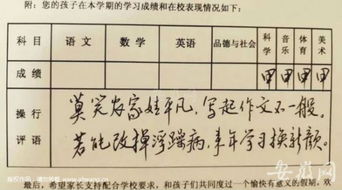 附：您的孩子在本学期的学习成绩和在校表现情况如下：
科目 语文 数学 英语 品德与社会 科学 音乐 体育 美术
成绩 甲 甲 甲 甲
操行评语
莫笑农家娃平凡，写起作文不一般。
若能改掉浮躁病，来年学习换新颜。
最后，希望家长支持配合学校要求，和孩子们共同度过一个愉快有意义的假期，欢
安徽网